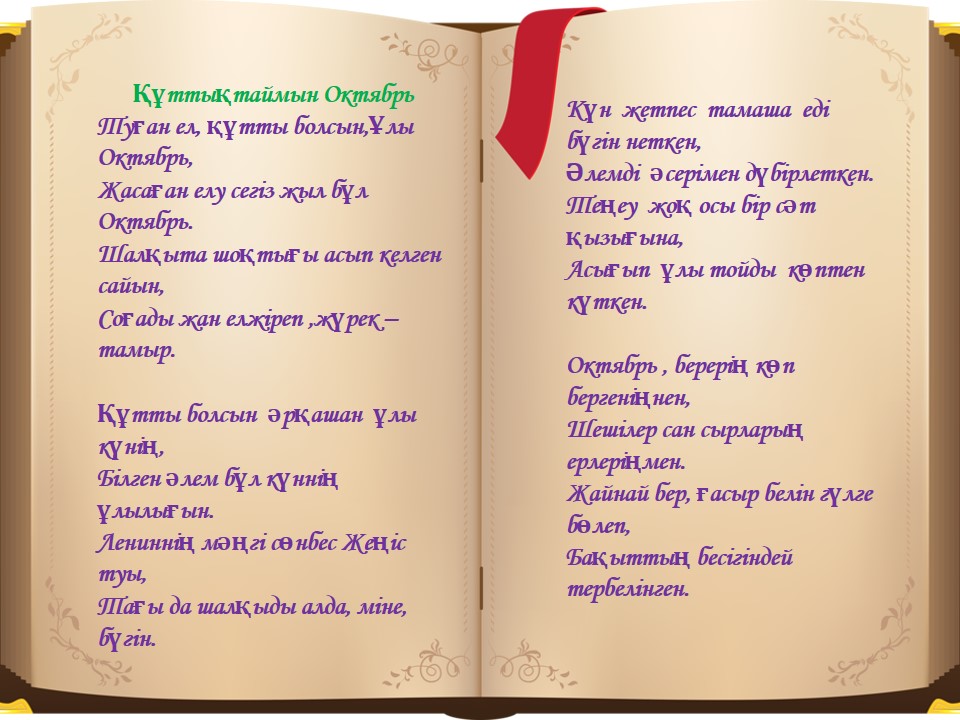 Құттықтаймын Октябрь
Туған ел, құтты болсын,Ұлы
Октябрь,
Жасаған елу сегіз жыл бұл
Октябрь.
Шалқыта шоқтығы асып келген
сайын,
Соғады жан елжіреп ,жүрек –
тамыр.
Құтты болсын әрқашан ұлы
күнің,
Білген әлем бұл күннің
ұлылығын.
Лениннің мәңгі сөнбес Жеңіс
туы,
Тағы да шалқыды алда, міне,
бүгін.
Күн жетпес тамаша еді
бүгін неткен,
Әлемді әсерімен дүбірлеткен.
Теңеу жоқ осы бір сәт
қызығына,
Асығып ұлы тойды көптен
күткен.
Октябрь , берерің көп
бергеніңнен,
Шешілер сан сырларың
ерлеріңмен.
Жайнай бер, ғасыр белін гүлге
бөлеп,
Бақыттың бесігіндей
тербелінген.